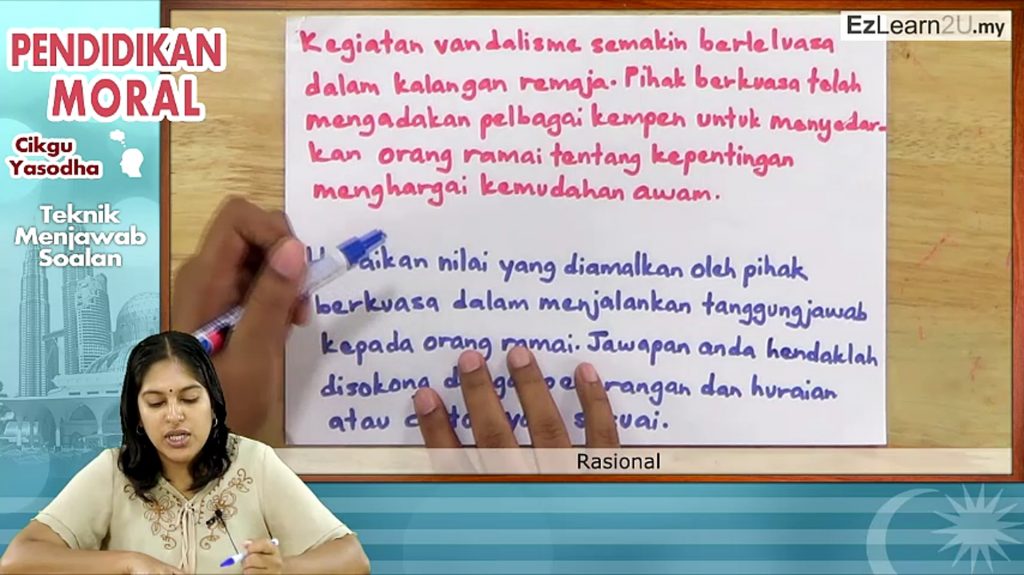 PENDIDIKAN
MORAL
Cikgu
Yasodha
Teknik
Menjawab
Soalan
EzLearn2U.my
Kegiatan vandalisme semakin berleluasa
dalam kalangan remaja. Pihak berkuasa telah
mengadakan pelbagai kempen untuk menyedar-
kan orang ramai tentang kepentingan
menghargai kemudahan awam.
nilai yang diamalkan oleh pihak
berkuasa dalam menjalankan tanggungjawab
kepada orang ramai. Jawapan anda hendaklah
dan huraian
atau
Rasional